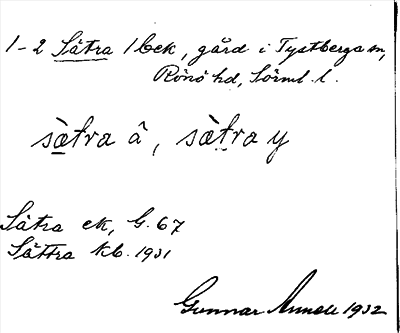 1-2 Sätra 1 bek, gård i Tystberga sn,
Rönö hd, Sörml. l.
sætra â, sætra y
Sätra ek, G. 67
Sättra kb. 1931
Gunnar Annell 1932